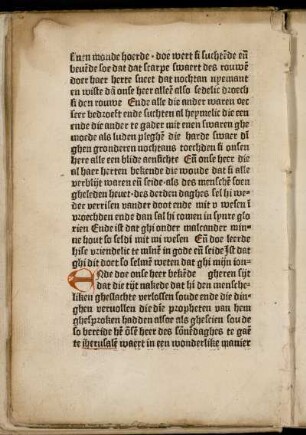 sinen monde hoerde · doe wert si suchtēde eñ
beuēde soe dat dat scarpe swaert des rouwē
doer haer herte sneet dat nochtan nyemant
en wiste dā onse heer alleē also sedelic droech
si den rouwe Ende alle die ander waren oec
seer bedroeft ende suchten al heymelic die een
ende die ander te gader mit enen swaren ghe
moede als luden pleghē die harde swaer di
ghen gronderen nochtans toechden si onsen
here alle een blide aensichte Eñ onse heer die
al haer herten bekende die woude dat si alle
verblijt waren eñ seide · als des menschē soen
ghesleden heuet · des derden daghes sel hi we
der verrisen vander doot ende mit v wesen ī
vroechden ende dan sal hi comen in synre glo
rien Ende ist dat ghi onder malcander min
ne hout so seldi mit mi wesen Eñ doe leerde
hise vriendelic te minē in gode eñ seide Ist dat
ghi dit doet so selmē weten dat ghi mijn ion-
Ende doe onse heer bekēde gheren sijt
dat die tijt nakede dat hi den mensche
liken gheslachte verlossen soude ende die din-
ghen veruollen die die propheten van hem
ghesproken hadden alsoe als ghescien soude
so bereide hē ōse heer des sōnēdaghes te gaē
te iherusalē waert in een wonderlike manier